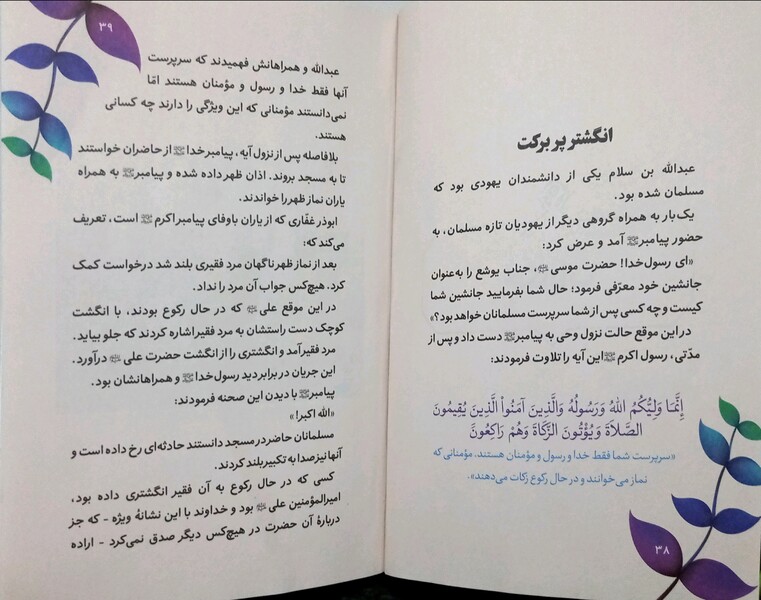 انگشتر پر برکت
عبدالله بن سلام یکی از دانشمندان یهودی بود که
مسلمان شده بود.
یک‌بار به همراه گروهی دیگر از یهودیان تازه مسلمان، به
حضور پیامبرﷺ آمد و عرض کرد:
«ای رسول‌خدا! حضرت موسی، جناب یوشع را به‌عنوان
جانشین خود معرّفی فرمود؛ حال شما بفرمایید جانشین شما
کیست و چه کسی پس از شما سرپرست مسلمانان خواهد بود؟»
در این موقع حالت نزول وحی به پیامبرﷺ دست داد و پس از
مدّتی، رسول اکرمﷺ این آیه را تلاوت فرمودند:
إِنَّمَا وَلِيُّكُمُ اللهُ وَرَسُولُهُ وَالَّذِينَ آمَنُواْ الَّذِينَ يُقِيمُونَ
الصَّلَاةَ وَيُؤْتُونَ الزَّكَاةَ وَهُمْ رَاكِعُونَ
«سرپرست شما فقط خدا و رسول و مؤمنان هستند، مؤمنانی که
نماز می‌خوانند و در حال رکوع زکات می‌دهند».
۳۸
۳۹
عبدالله و همراهانش فهمیدند که سرپرست
آنها فقط خدا و رسول و مؤمنان هستند امّا
نمی‌دانستند مؤمنانی که این ویژگی را دارند چه کسانی
هستند.
بلافاصله پس از نزول آیه، پیامبر خداﷺ از حاضران خواستند
تا به مسجد بروند. اذان ظهر داده شده و پیامبرﷺ به همراه
یاران نماز ظهر را خواندند.
ابوذر غفّاری که از یاران باوفای پیامبر اکرمﷺ است، تعریف
می‌کند که:
بعد از نماز ظهر ناگهان مرد فقیری بلند شد درخواست کمک
کرد. هیچ‌کس جواب آن مرد را نداد.
در این موقع علی که در حال رکوع بودند، با انگشت
کوچک دست راستشان به مرد فقیر اشاره کردند که جلو بیاید.
مرد فقیر آمد و انگشتری را از انگشت حضرت علی درآورد.
این جریان در برابر دید رسول‌خداﷺ و همراهانشان بود.
پیامبرﷺ با دیدن این صحنه فرمودند:
«الله اکبر!»
مسلمانان حاضر در مسجد دانستند حادثه‌ای رخ داده است و
آنها نیز صدا به تکبیر بلند کردند.
کسی که در حال رکوع به آن فقیر انگشتری داده بود،
امیرالمؤمنین علی بود و خداوند با این نشانهٔ ویژه - که جز
دربارهٔ آن حضرت در هیچ‌کس دیگر صدق نمی‌کرد - اراده